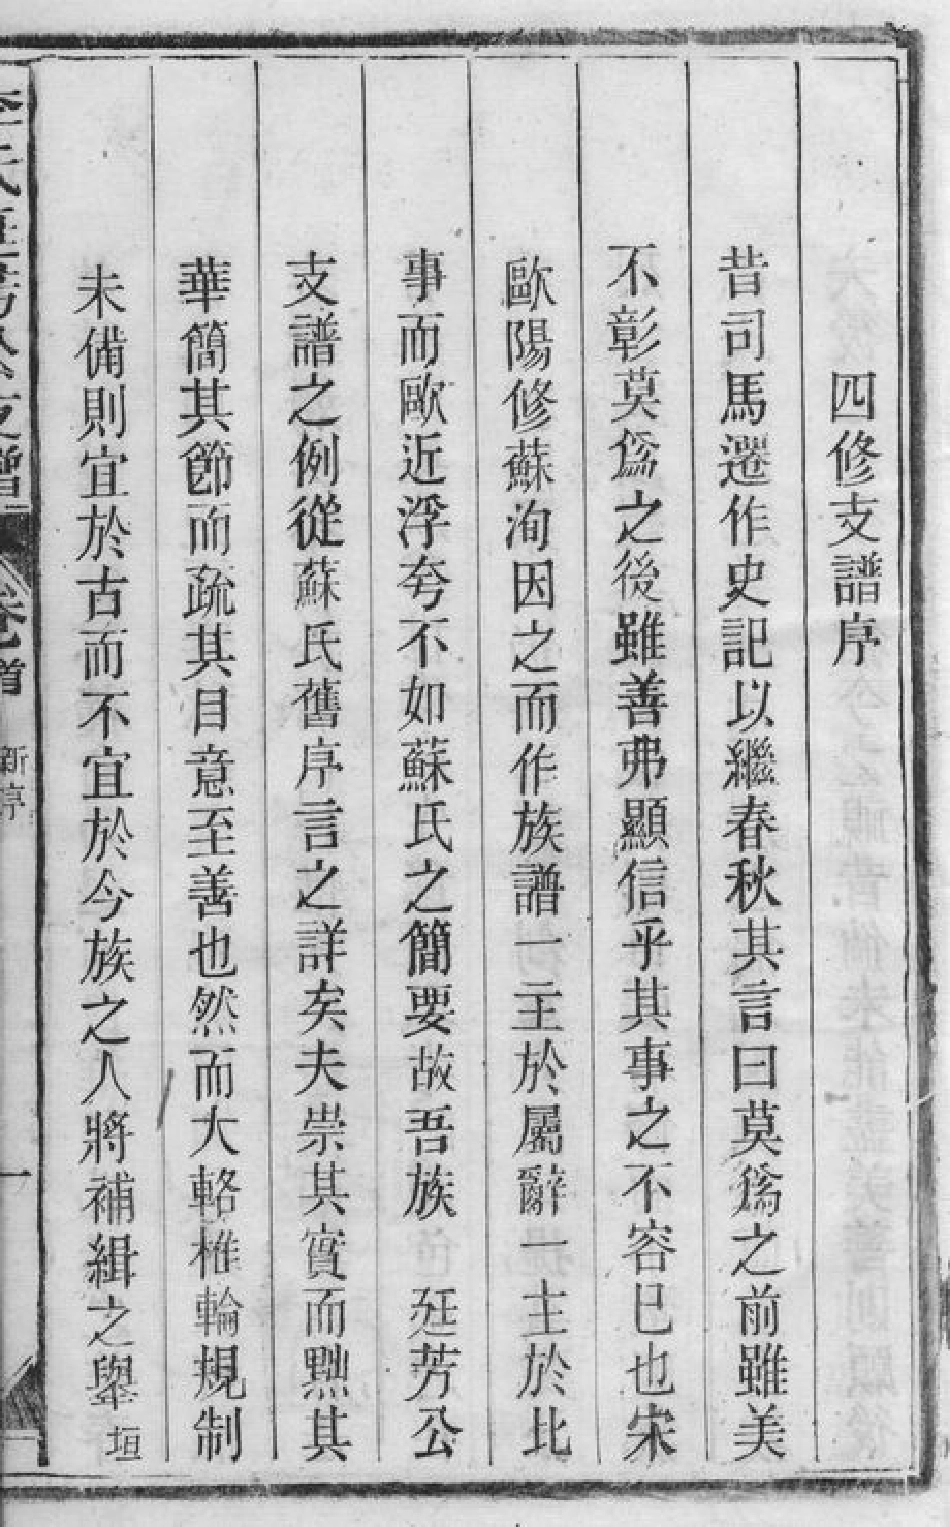 四修支譜序
昔司馬遷作史記以繼春秋其言曰莫爲之前雖美
不彰莫爲之後雖善弗顯信乎其事之不容已也宋
歐陽修蘇洵因之而作族譜一主於屬辭一主於比
事而歐近浮夸不如蘇氏之簡要故吾族 廷芳公
支譜之例從蘇氏舊序言之詳矣夫崇其實而黜其
華簡其節而疏其目意至善也然而大輅椎輪規制
未備則宜於古而不宜於今族之人將補緝之舉垣
李氏廷芳公支譜 卷首 新序 一